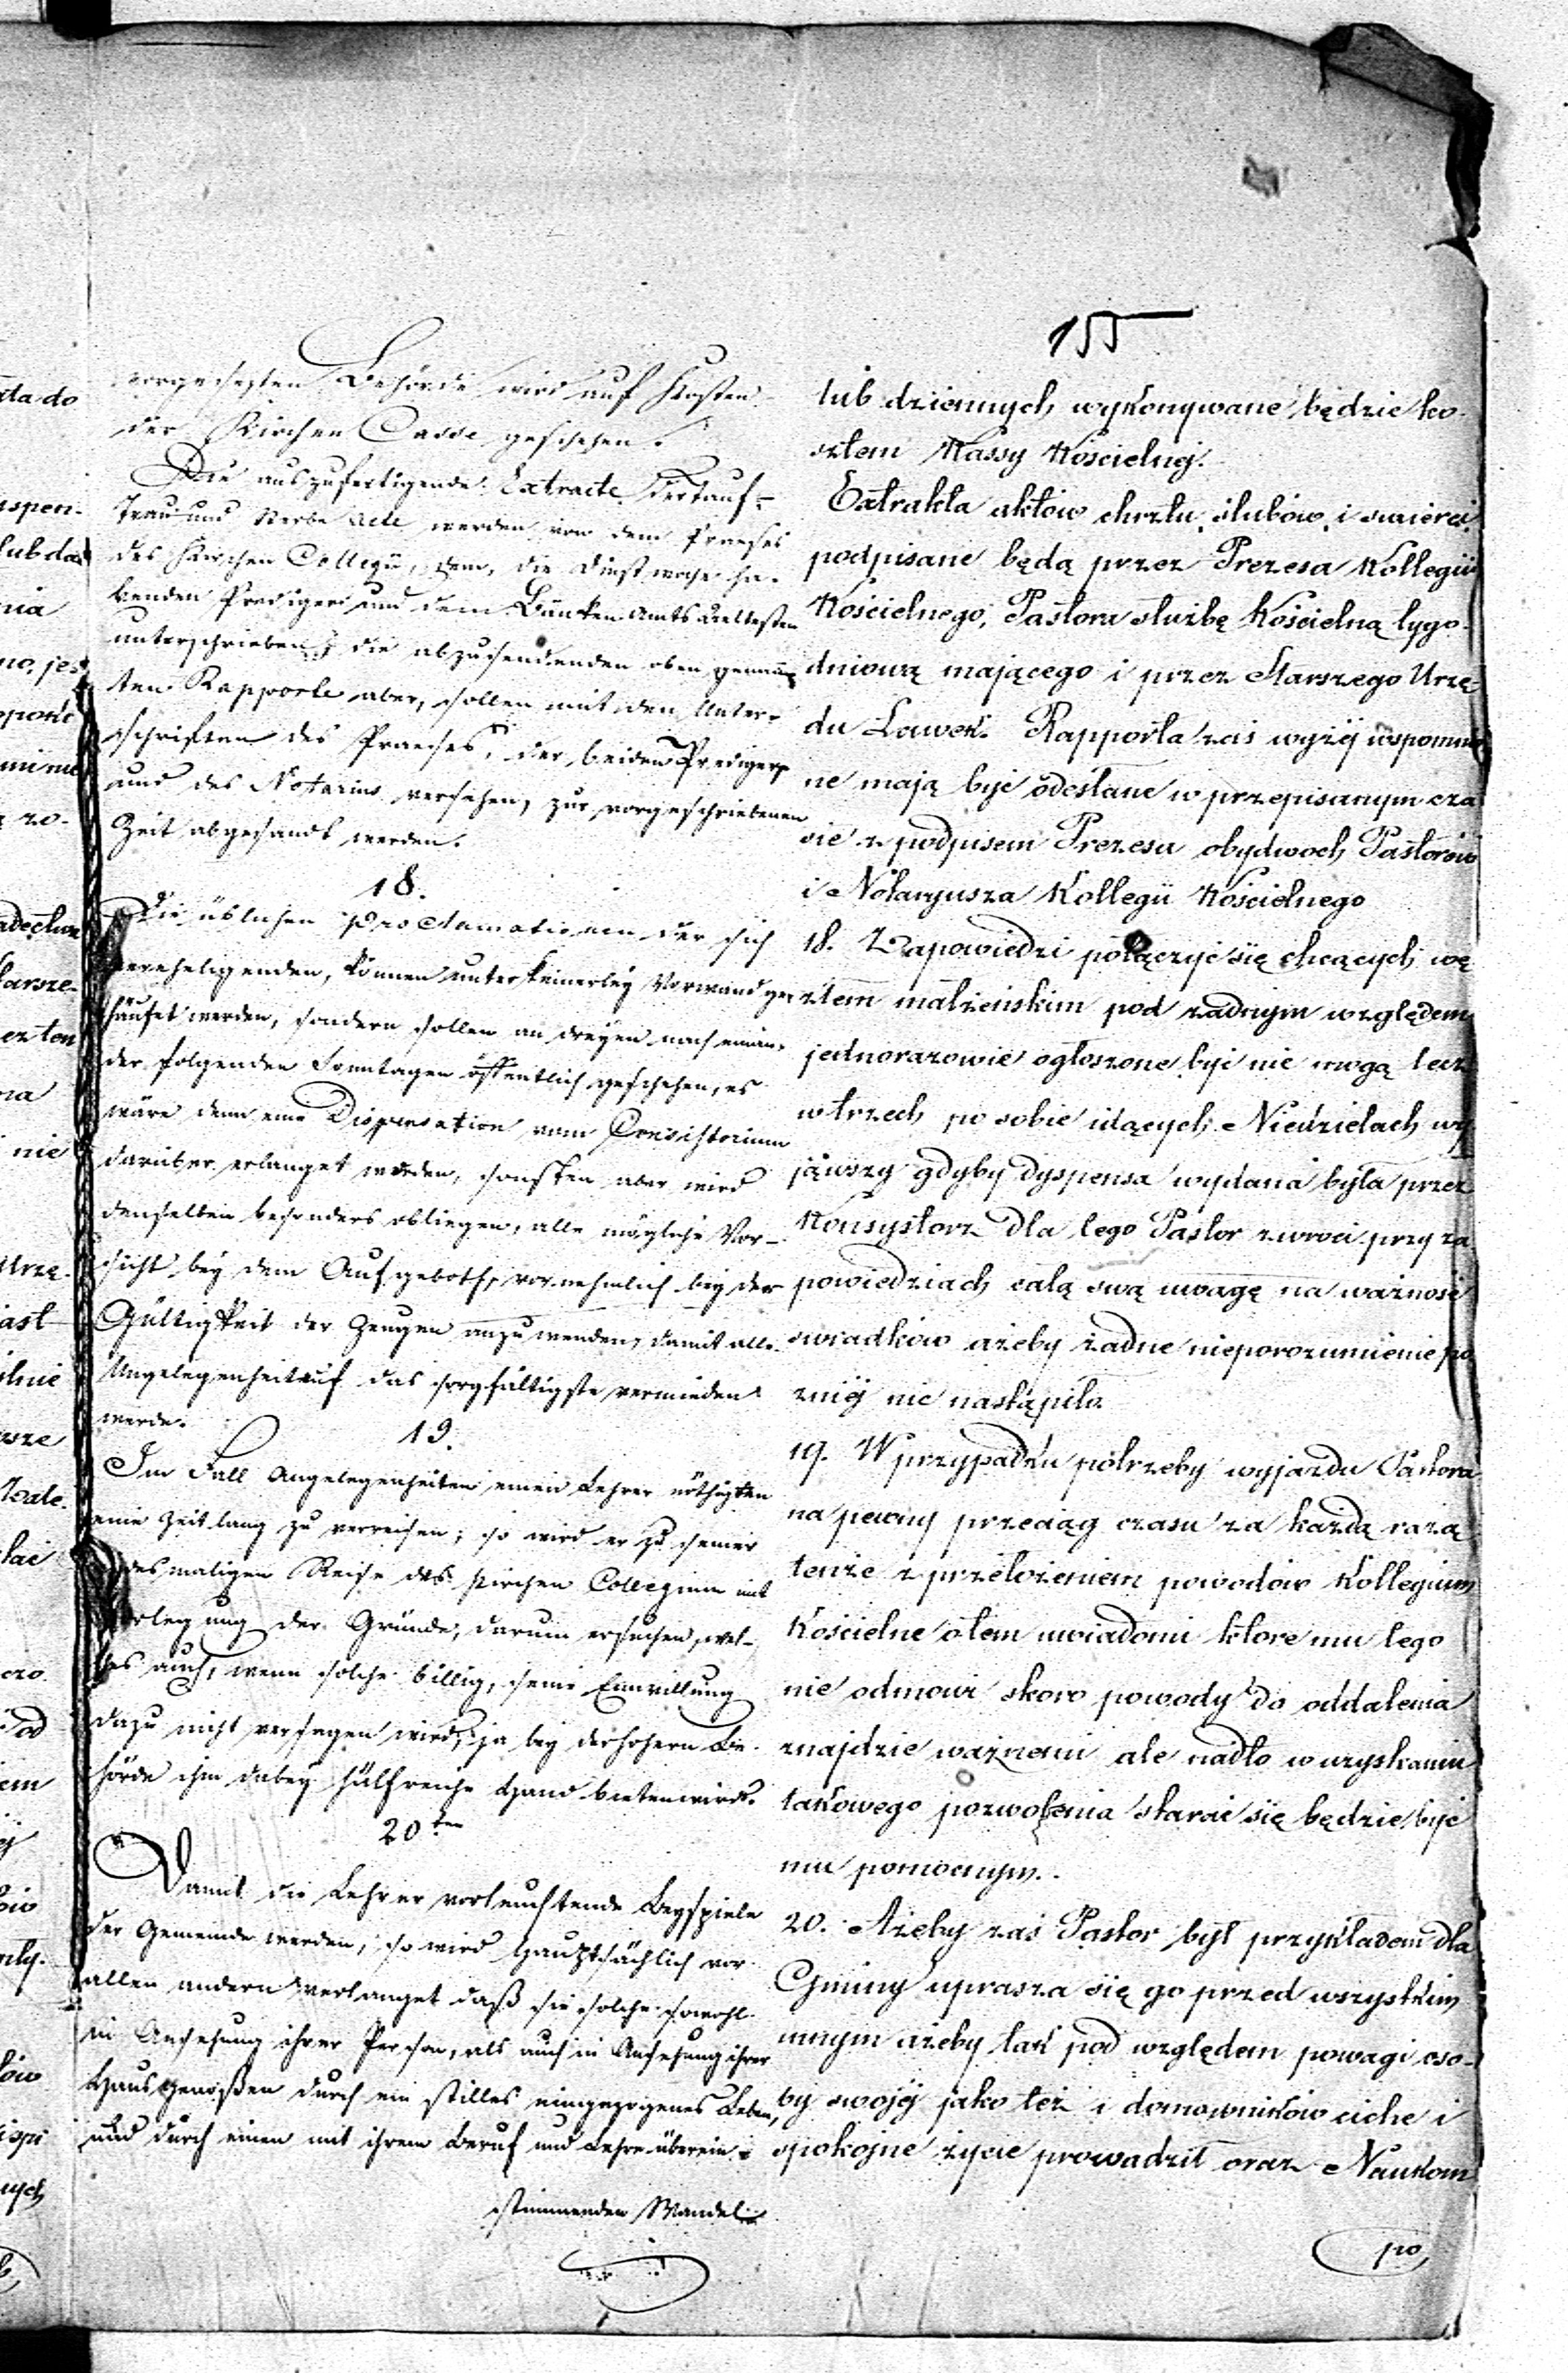 155
vorgesetzten Behörde wird auf Kosten
der Kirchen Casse geschehen.
Die auszufertigende Extracte der Tauf-
Trau- und Sterbe Acte werden von dem Praeses
des Kirchen Collegii, dem, die Dienstwoche ha-
benden Prediger und dem Bänken Amts Aeltesten
unterschrieben; die abzusendenden oben genann-
ten Rapporte aber, sollen mit den Unter-
schriften des Praeses, der beiden Prediger
und des Notarius versehen, zur vorgeschriebenen
Zeit abgesandt werden.
18.
Die üblichen Proclamationen der sich
verehelichenden, können unter keinerley Vorwand ge-
häufet werden, sondern sollen an dreyen nach einan-
der folgenden Sonntagen öffentlich geschehen, es
wäre denn eine Dispensation vom Consistorium
darüber erlanget worden, sonsten aber wird
denselben besonders obliegen, alle mögliche Vor-
sicht bey dem Aufgeboth, vornehmlich bey der
Gültigkeit der Zeugen anzuwenden, damit alle
Ungelegenheit auf das sorgfältigste vermieden
werde.
19.
Im Fall Angelegenheiten einen Lehrer nöthigten
eine Zeitlang zu verreisen; so wird er zu seiner
jedesmaligen Reise das Kirchen Collegium mit
Vorlegung der Gründe, darum ersuchen, wel-
ches auch, wenn solche billig, seine Einwilligung
dazu nicht versagen wird, ja bey der höhern Be-
hörde ihm dabey hülfreiche Hand bieten wird.
20ten
Damit die Lehrer vorleuchtende Beyspiele
der Gemeinde werden, so wird hauptsächlich vor
allen andern verlanget daß sie solche sowohl
in Ansehung ihrer Person, als auch in Ansehung ihrer
Hausgenoßen durch ein stilles eingezogenes Leben,
und durch einen mit ihrem Beruf und Lehre überein-
stimmenden Wandel
lub dziennych wykonywane będzie ko-
sztem Kassy Kościelnej.
Extrakta aktów chrztu, ślubów, i śmierci,
podpisane będą przez Prezesa Kollegii
Kościelnego, Pastora służbę Kościelną tygo-
dniową mającego i przez Starszego Urzę-
du Ławek. Rapporta zaś wyżej wspomnio
ne mają być odesłane w przepisanym cza
sie z podpisem Prezesa obydwoch Pastorów
i Notaryusza Kollegii Kościelnego
18. Zapowiedzi połączyć się chcących wę
złem małżeńskim pod żadnym względem
jednorazowie ogłoszone być nie mogą lecz
w trzech po sobie idących Niedzielach wy
jąwszy gdyby dyspensa wydana była przez
Konsystorz Dla tego Pastor zwroci przy za
powiedziach całą swą uwagę na ważność
swiadków ażeby żadne nieporozumienie po
zniej nie nastąpiło.
19. W przypadku potrzeby wyjazdu Pastora
na pewny przeciąg czasu za każdą razą
tenże z przełożeniem powodów Kollegium
Kościelne o tem uwiadomi które mu tego
nie odmowi skoro powody do oddalenia
znajdzie ważnemi ale nadto w uzyskaniu
takowego pozwolenia starać się będzie być
mu pomocnym.
20. Ażeby zaś Pastor był przykładem dla
Gminy uprasza się go przed wszystkim
innym ażeby tak pod względem powagi oso-
by swojej jako też i domowników ciche i
spokojne życie prowadził oraz Naukom
po